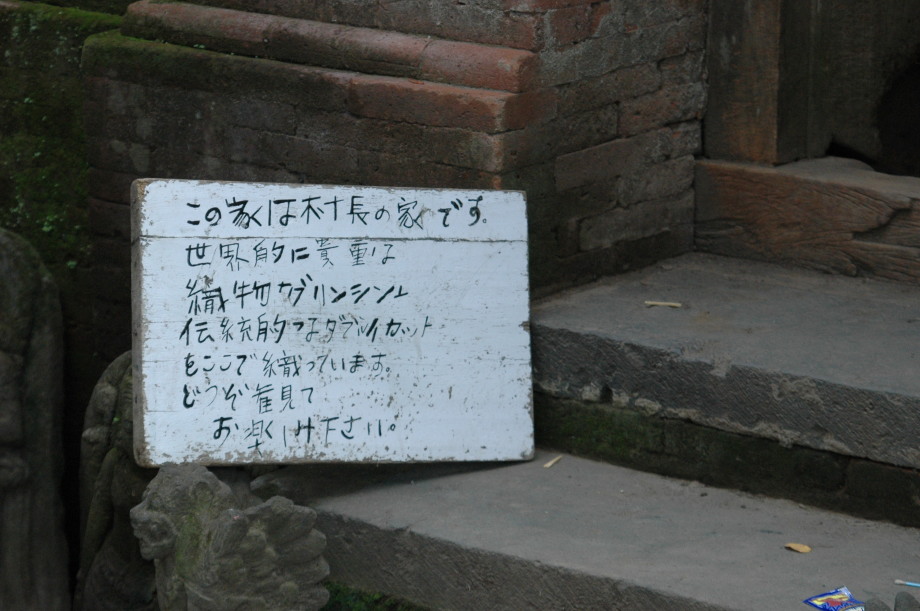 この家は村長の家です。
世界的に貴重な
織物カブリンシンと
伝統的なダブルイカット
をここで織っています。
どうぞ見て
お楽しみ下さい。